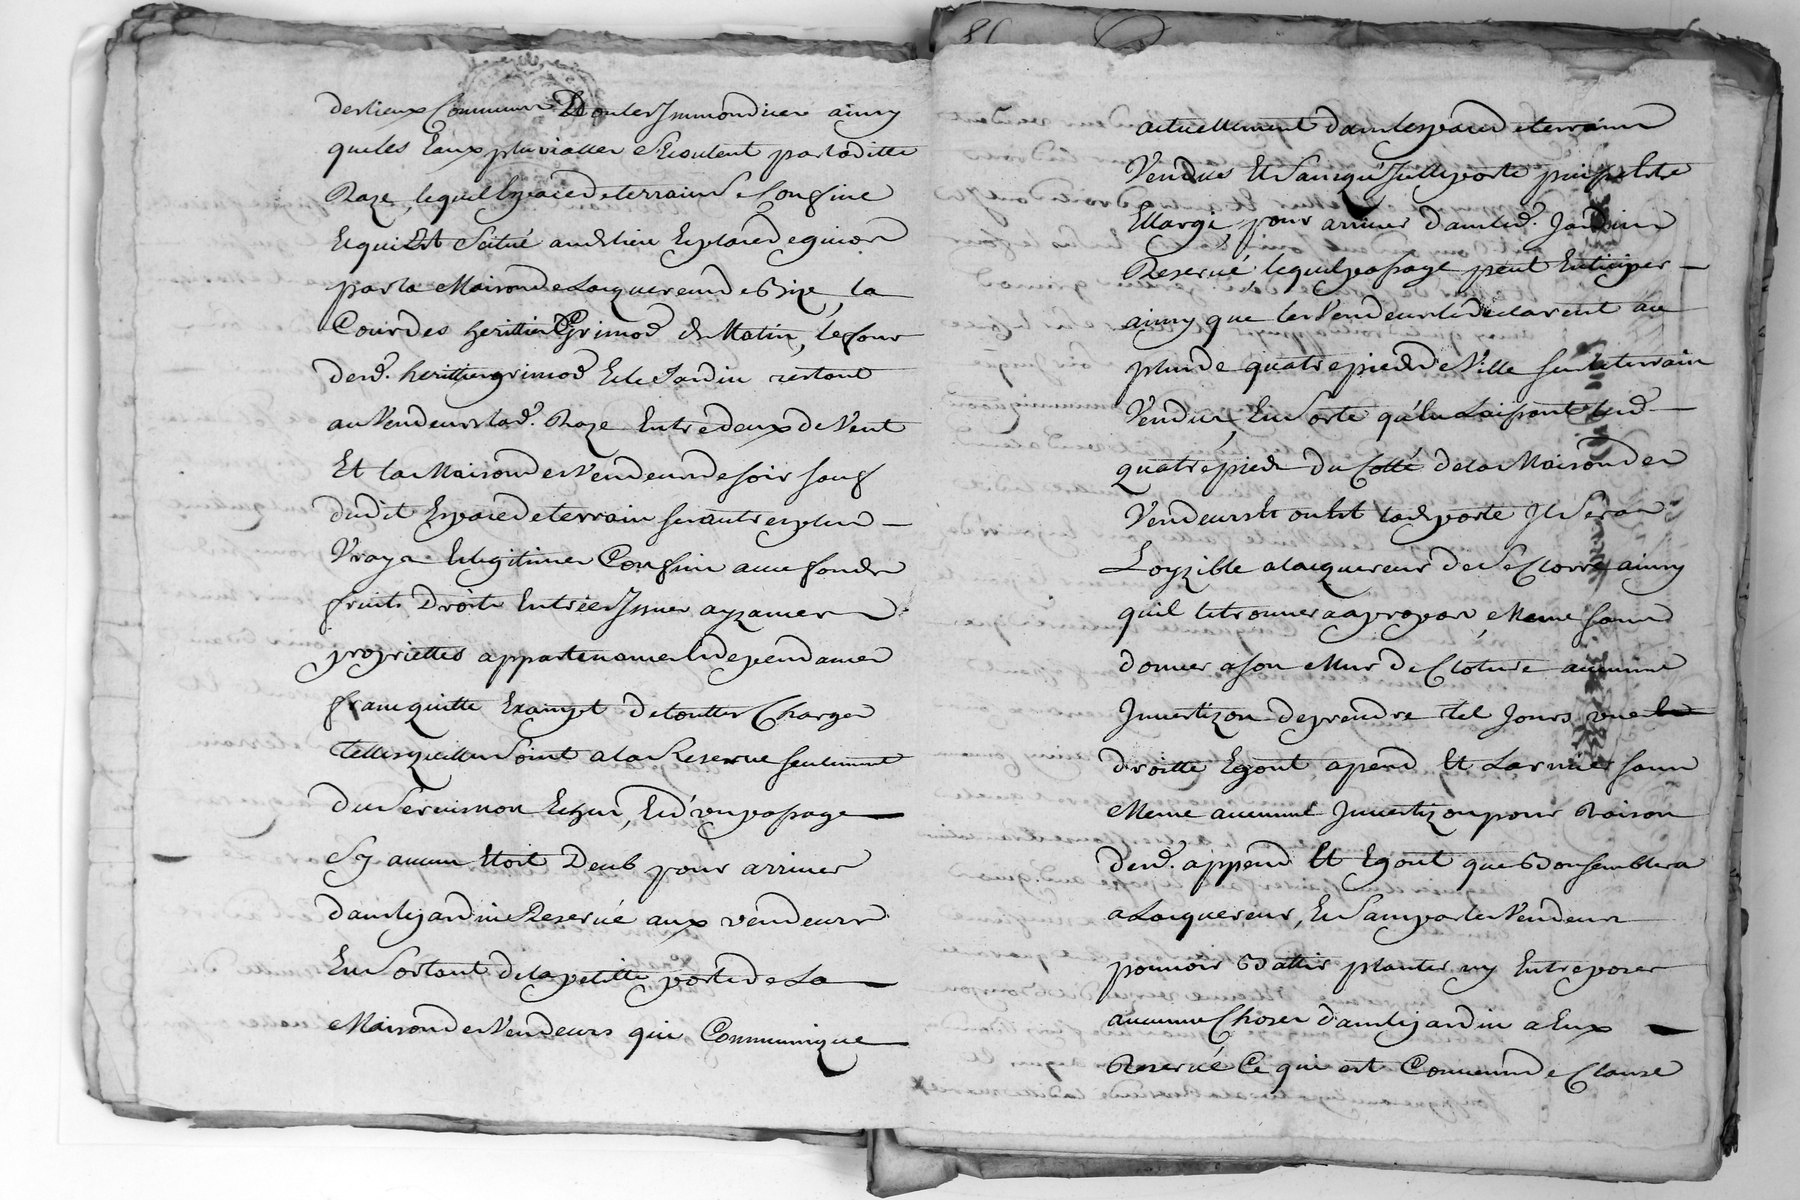 des lieux Communs Dont les Immondices ainsy
que les Eaux pluvialles s'Ecoulent par laditte
Raze, lequel Espace de terrain se Confine
Et qui Est Scitué audt lieu Esplace de
par la Maison de Lacquereur de Bize, la
Cour des heritiers Grimod de Matin, le four
desd. heritiers grimod Et le Jardin restant
au Vendeurs lad. Raze Entredeux de Vent
Et la Maison des Vendeurs de soir sauf
dudit Espace de terrain ses autres plus
Vrays Et legitimes Confins avec fonds
fruits Droits Entrées Issues ayzances
propriettés appartenances Et dependances
franc quitte Exampt de touttes Charges
telles quelles Soint a la Reserve seulement
du Servis non Echus, Et d'un passage
Sy aucun Etoit Deub pour arriver
dans le jardin Reservé aux vendeurs
En Sortant de la petitte porte de La
Maison des Vendeurs qui Communique
actuellement dans lespace de terrain
Vendus Et Sans qu'Icelle porte puisse Etre
Ellargi, pour arriver dans led. Jardin
Reservé, lequel passage peut Enticiper
ainsy que les Vendeurs le declarent au
plus de quatre pieds de Ville sur le terrain
Vendus, En Sorte qu'En Laissant lesd.
quatre pieds du Cotté de la Maison des
Vendeurs Et ou Est lad. porte Il Sera
Loyzible a lacquereur de Se Clorre ainsy
quil le trouvera a propos, Meme sans
donner a son Mur de Cloture aucune
Invertizon de prendre tel Jours vue
droitte Egout apend Et Larmier sans
Meme aucune Invertizon pour Raison
desd. append Et Egout que Bon semblera
a Lacquereur, Et Sans que les Vendeurs
pouvoir Battir planter ny Entreposer
aucunne Choses dans le jardin a Eux
Reservé Ce qui est Convenu de Clause